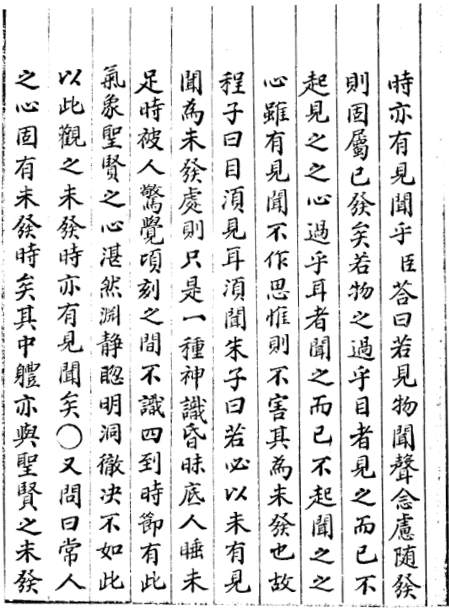 時亦有見聞乎臣答曰若見物聞聲念慮隨發
則固屬已發矣若物之過乎目者見之而已不
起見之之心過乎耳者聞之而已不起聞之之
心雖有見聞不作思惟則不害其為未發也故
程子曰目須見耳須聞朱子曰若必以未有見
聞為未發處則只是一種神識昏昧底人睡未
足時被人驚覺頃刻之間不識四到時節有此
氣象聖賢之心湛然淵静聦明洞徹决不如此
以此觀之未發時亦有見聞矣○又問曰常人
之心固有未發時矣其中體亦與聖賢之未發